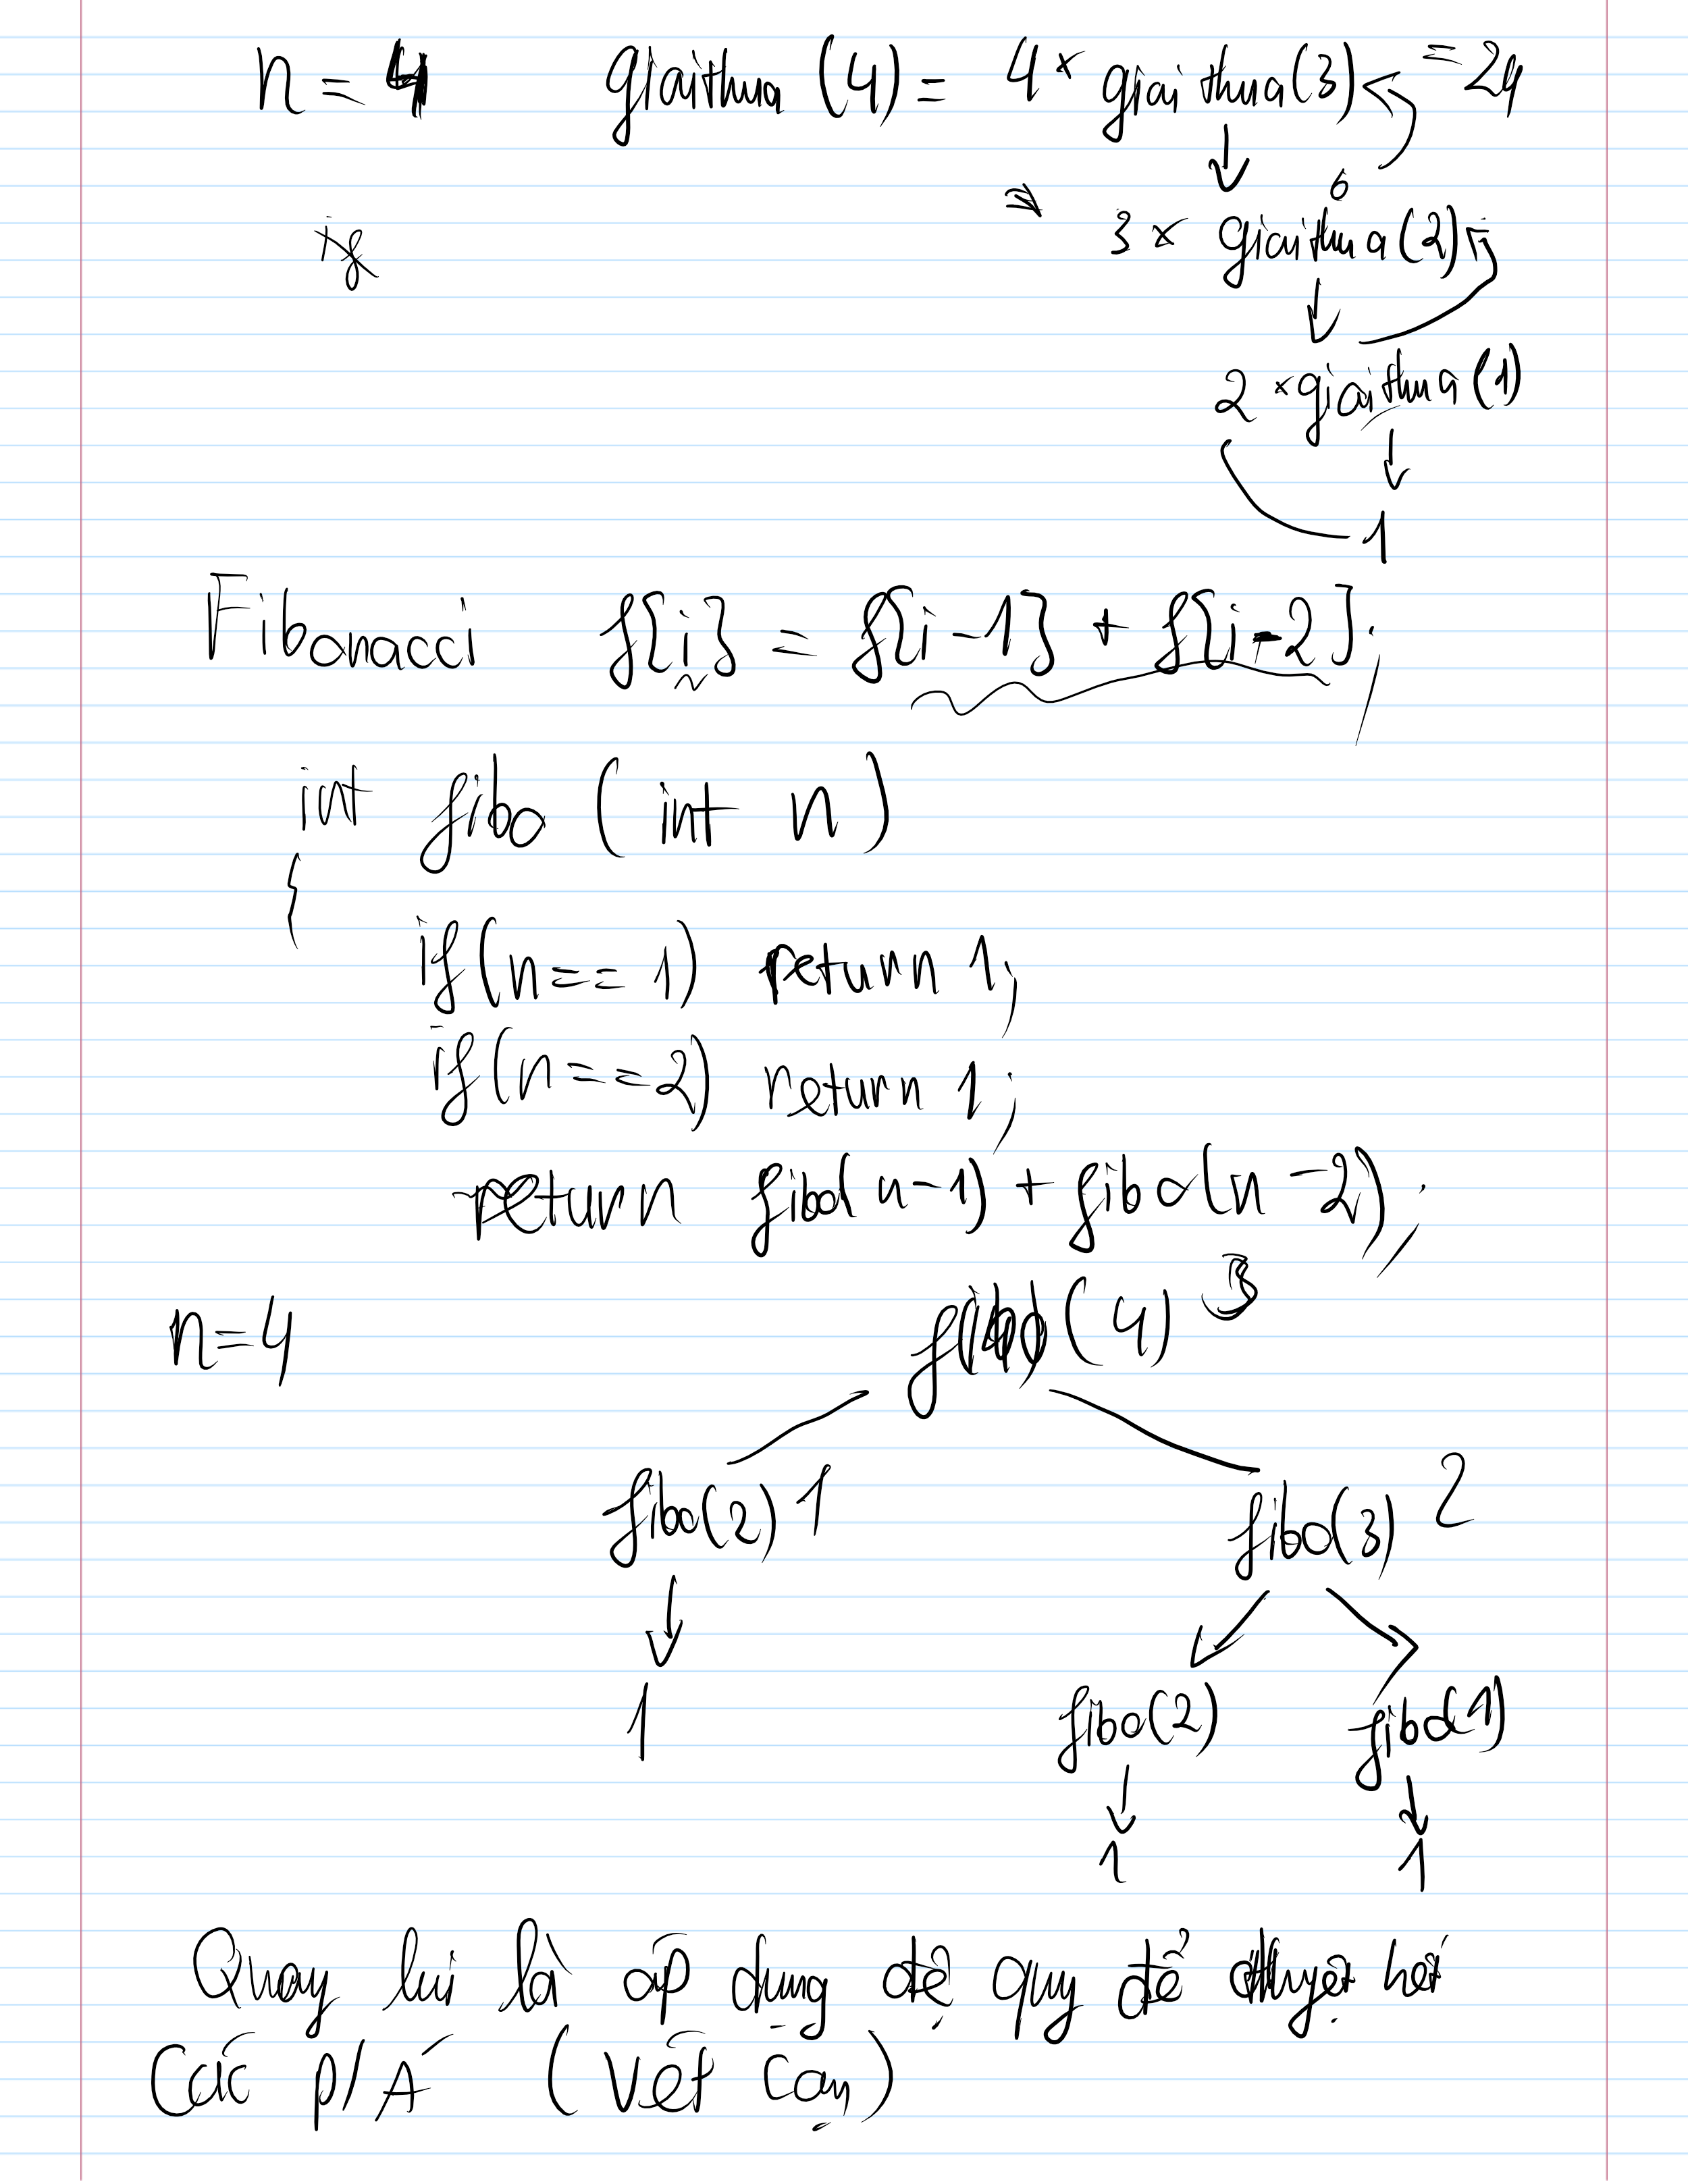 n = 4 giaithua (4) = 4 x giai thua(3) = 24
if 3 x giaithua(2) 6
2 x giaithua(1)
1
Fibonacci f[i] = f[i-1] + f[i-2];
int fibo (int n)
{
if(n==1) return 1;
if(n==2) return 1;
return fibo(n-1) + fibo(n-2);
n=4 fibo(4) 3
fibo(2) 1 fibo(3) 2
1 fibo(2) fibo(1)
1 1
Quay lui là áp dụng đệ quy để duyệt hết
các P/Á (Vét cạn)